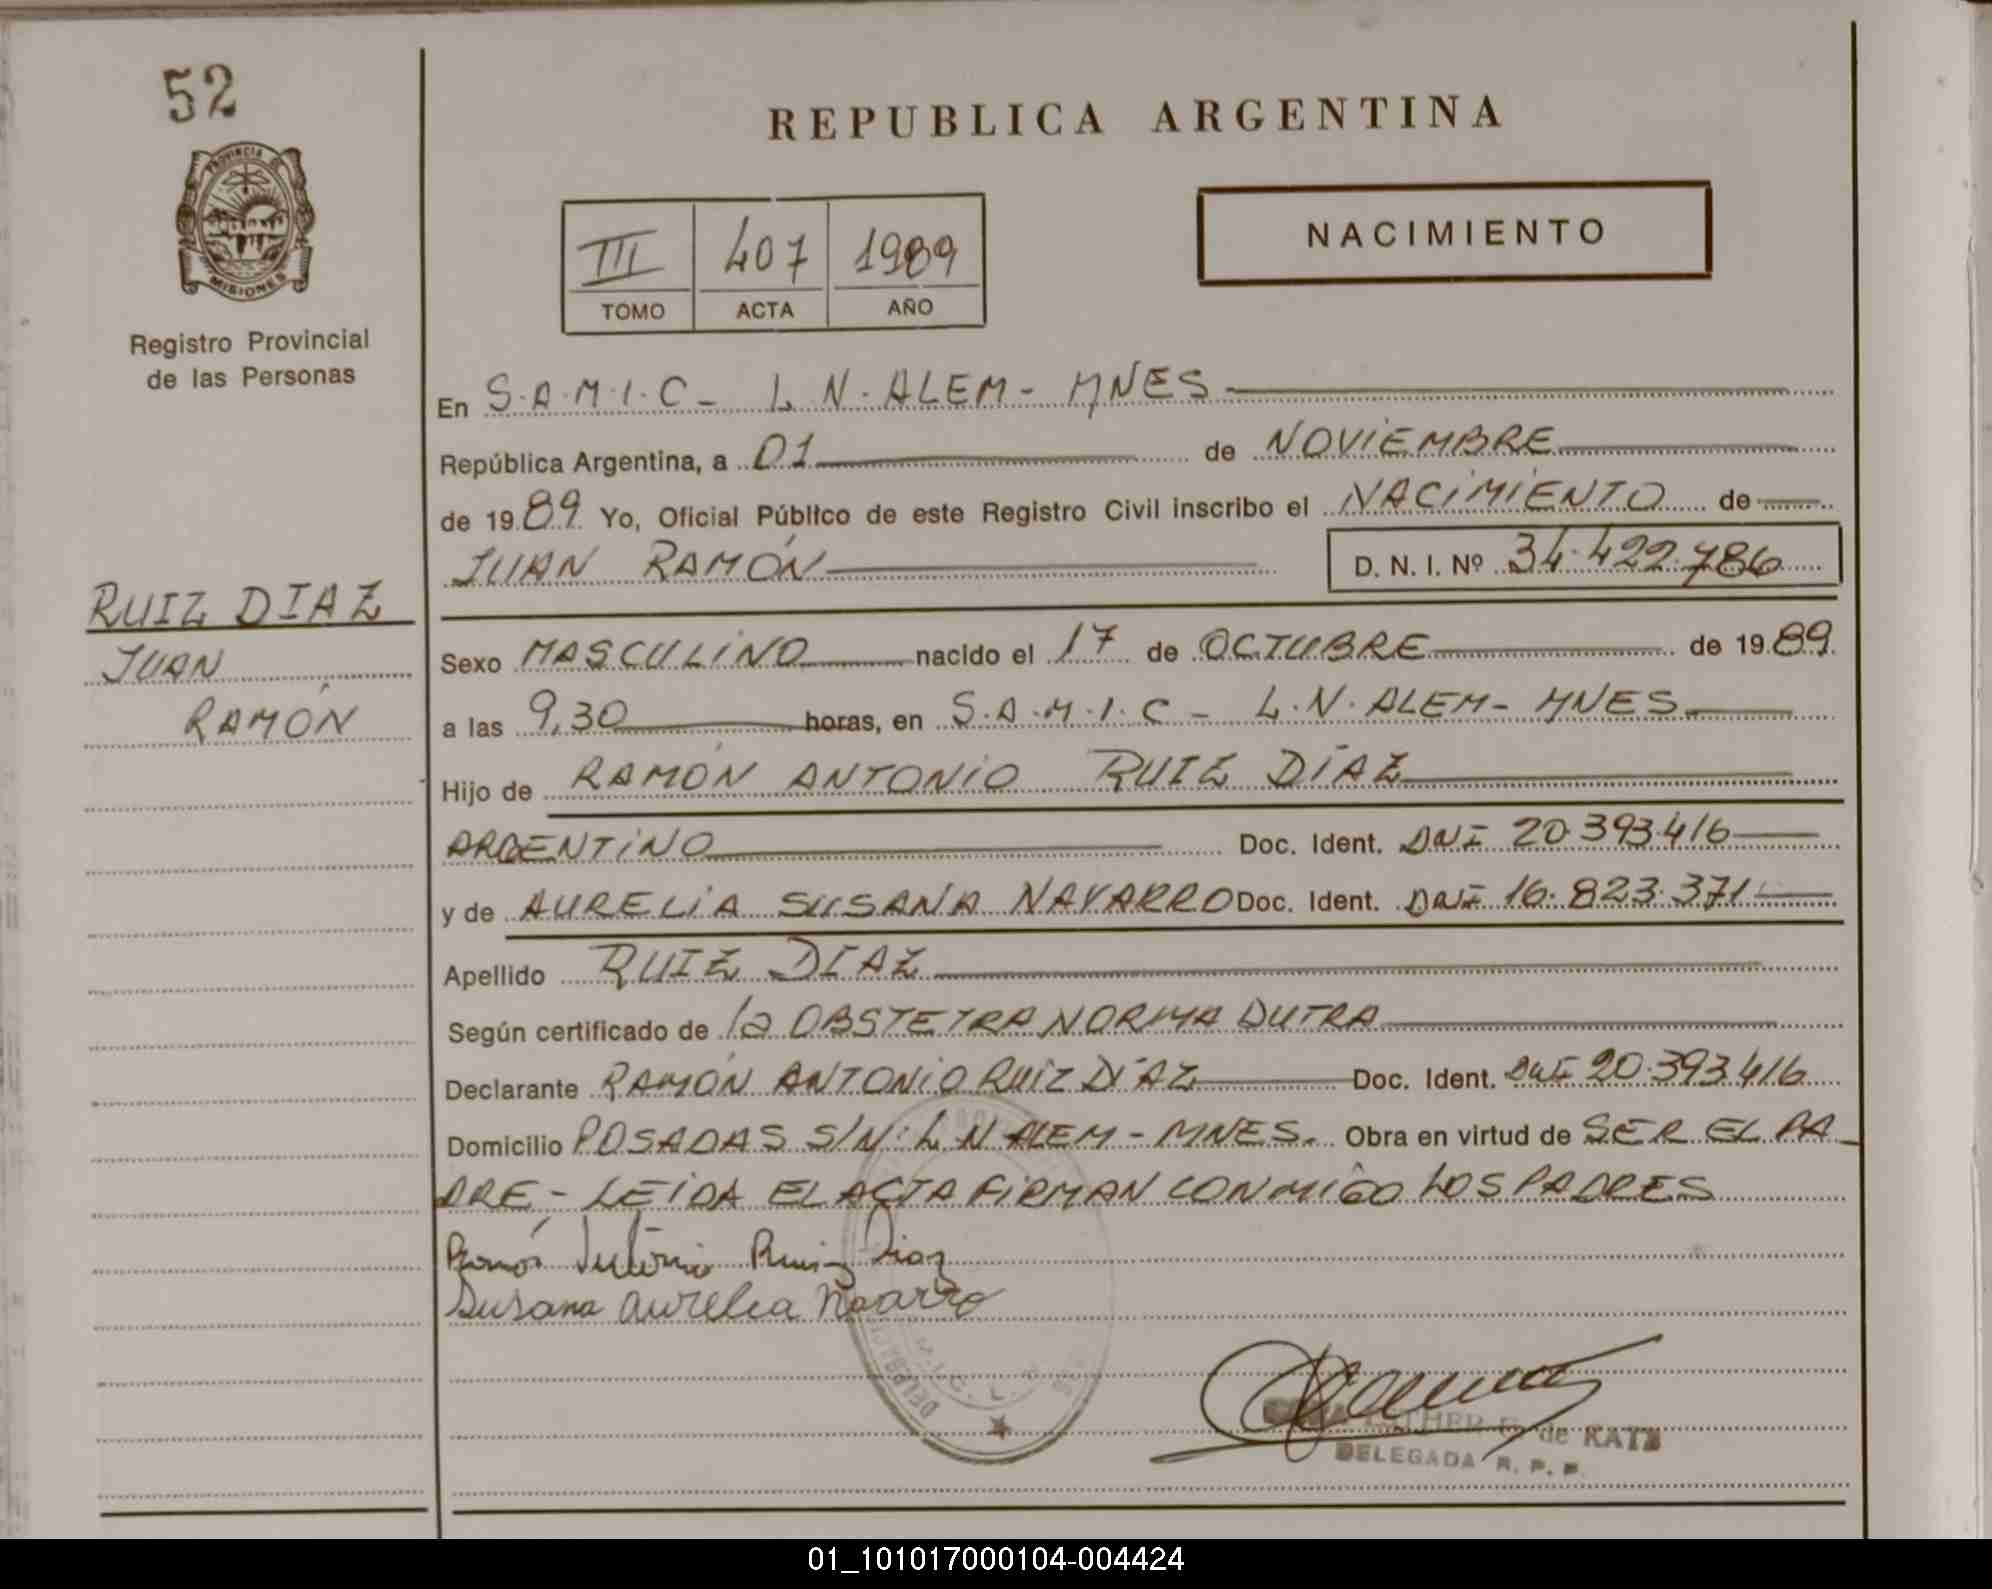 52
PROVINCIA DE
MISIONES
Registro Provincial
de las Personas
RUIZ DIAZ
JUAN
RAMÓN
REPUBLICA ARGENTINA
III 407 1989
TOMO ACTA AÑO
NACIMIENTO
En S.A.M.I.C - L.N.ALEM - MNES
República Argentina, a 01 de NOVIEMBRE
de 1989 Yo, Oficial Público de este Registro Civil inscribo el NACIMIENTO de
JUAN RAMÓN D. N. I. Nº 34.422.786
Sexo MASCULINO nacido el 17 de OCTUBRE de 1989
a las 9,30 horas, en S.A.M.I.C - L.N.ALEM - MNES
Hijo de RAMÓN ANTONIO RUIZ DÍAZ
ARGENTINO Doc. Ident. DNI 20.393.416
y de AURELIA SUSANA NAVARRO Doc. Ident. DNI 16.823.371
Apellido RUIZ DIAZ
Según certificado de la OBSTETRA NORMA DUTRA
Declarante RAMÓN ANTONIO RUIZ DÍAZ Doc. Ident. DNI 20.393.416
Domicilio POSADAS S/N: L.N ALEM - MNES. Obra en virtud de SER EL PA
DRE - LEIDA EL ACTA FIRMAN CONMIGO LOS PADRES
Ramón Antonio Ruiz Diaz
Susana Aurelia Navarro
ESTHER E. de KATZ
DELEGADA R. P. P.
01_101017000104-004424